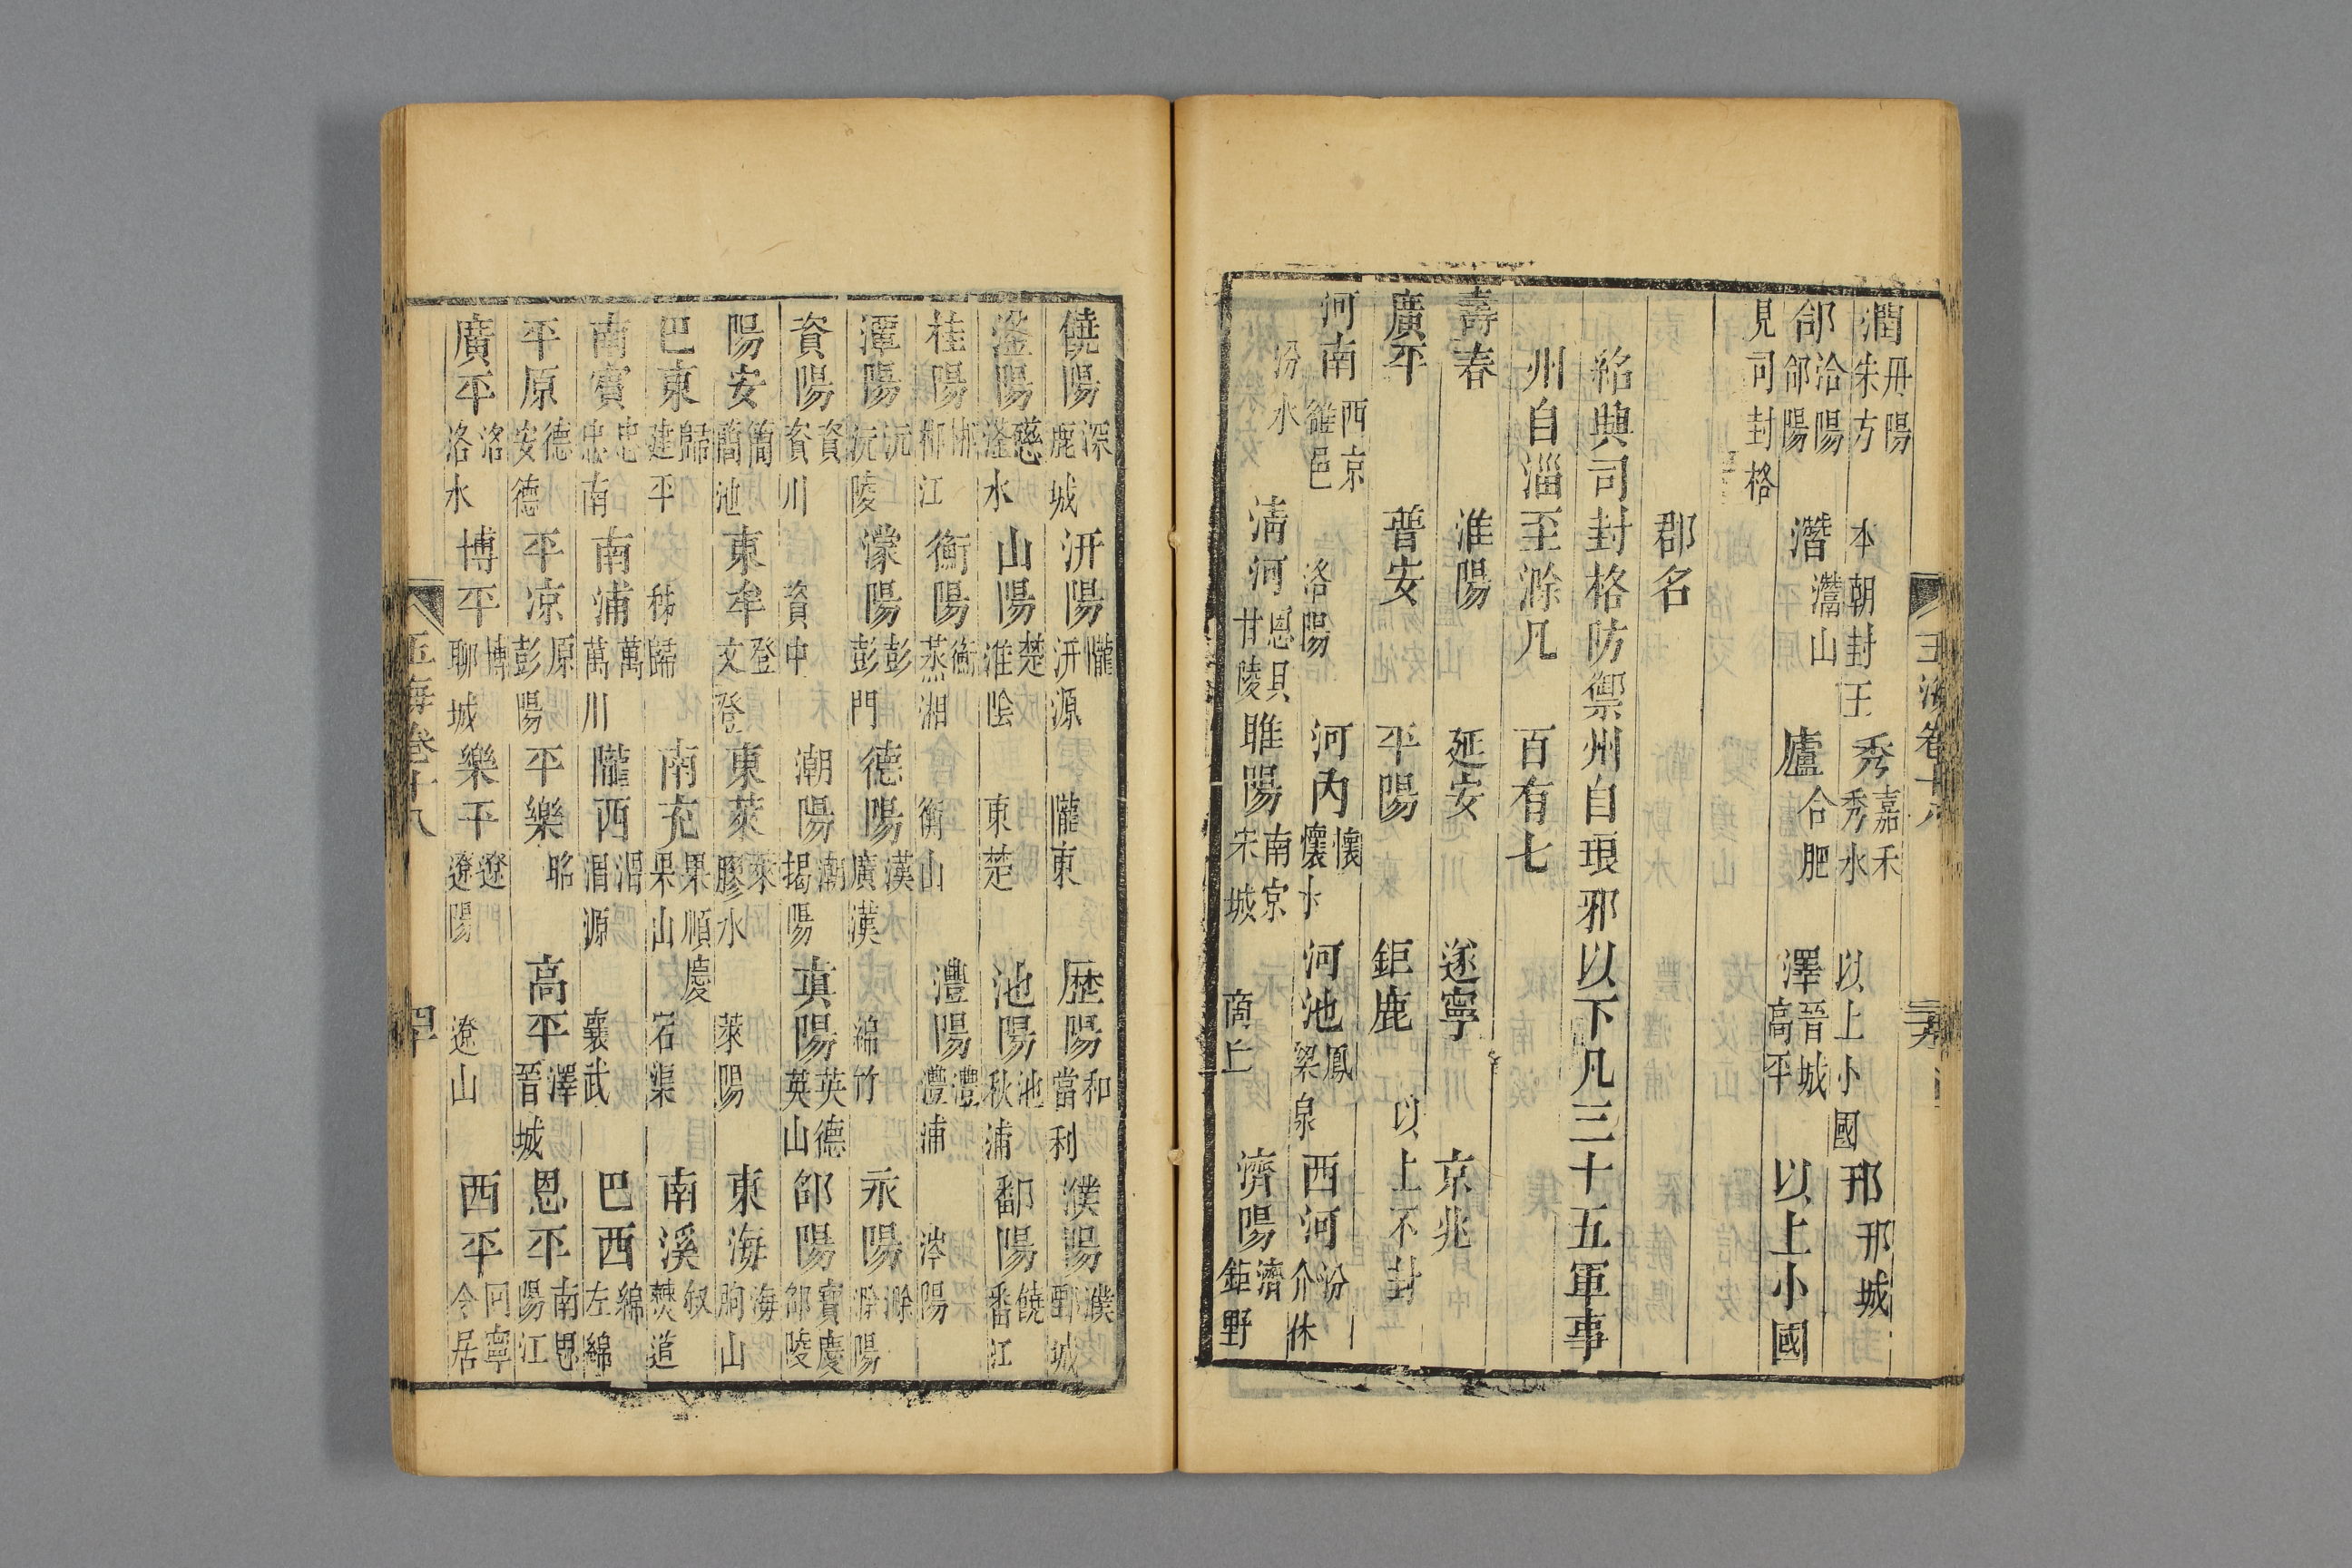 潤 丹陽 朱方 本朝封王 秀 嘉禾 秀水 以上小國 邢 邢城
郃 洽陽 郃陽 潛 灊山 廬 合肥 澤 晉城 高平 以上小國
見司封格
郡名
紹興司封格防禦州自琅邪以下凡三十五軍事
州自淄至滁凡 百有七
壽春 淮陽 延安 遂寧 京兆
廣平 普安 平陽 鉅鹿 以上不封
河南 西京 雒邑 洛陽 河內 懷 懷水 河池 鳳 梁泉 西河 汾 介休
汾水 清河 恩貝 甘陵 睢陽 南京 宋城 商丘 濟陽 濟 鉅野
玉海卷十八
饒陽 深 鹿城 汧陽 隴 汧源 隴東 歷陽 和 當利 濮陽 濮 鄄城
滏陽 慈 滏水 山陽 楚 淮陰 東楚 池陽 池 秋浦 鄱陽 饒 番江
桂陽 郴 郴江 衡陽 衡 蒸湘 衡山 澧陽 澧 澧浦 涔陽
潭陽 沅 沅陵 濛陽 彭 彭門 德陽 漢 廣漢 綿竹 永陽 滁 滁陽
資陽 資 資川 資中 潮陽 潮 揭陽 真陽 英德 英山 邵陽 寶慶 邵陵
陽安 簡 簡池 東牟 登 文登 東萊 萊 膠水 萊陽 東海 海 朐山
巴東 歸 建平 秭歸 南充 果順慶 果山 宕渠 南溪 敘 僰道
南賓 忠 忠南 南浦 萬 萬川 隴西 渭 渭源 襄武 巴西 綿 左綿
平原 德 安德 平涼 原 彭陽 平樂 昭 高平 澤 晉城 恩平 南恩 陽江
廣平 洺 洺水 博平 博 聊城 樂平 遼 遼陽 遼山 西平 同寧 令居
玉海卷十八 四十